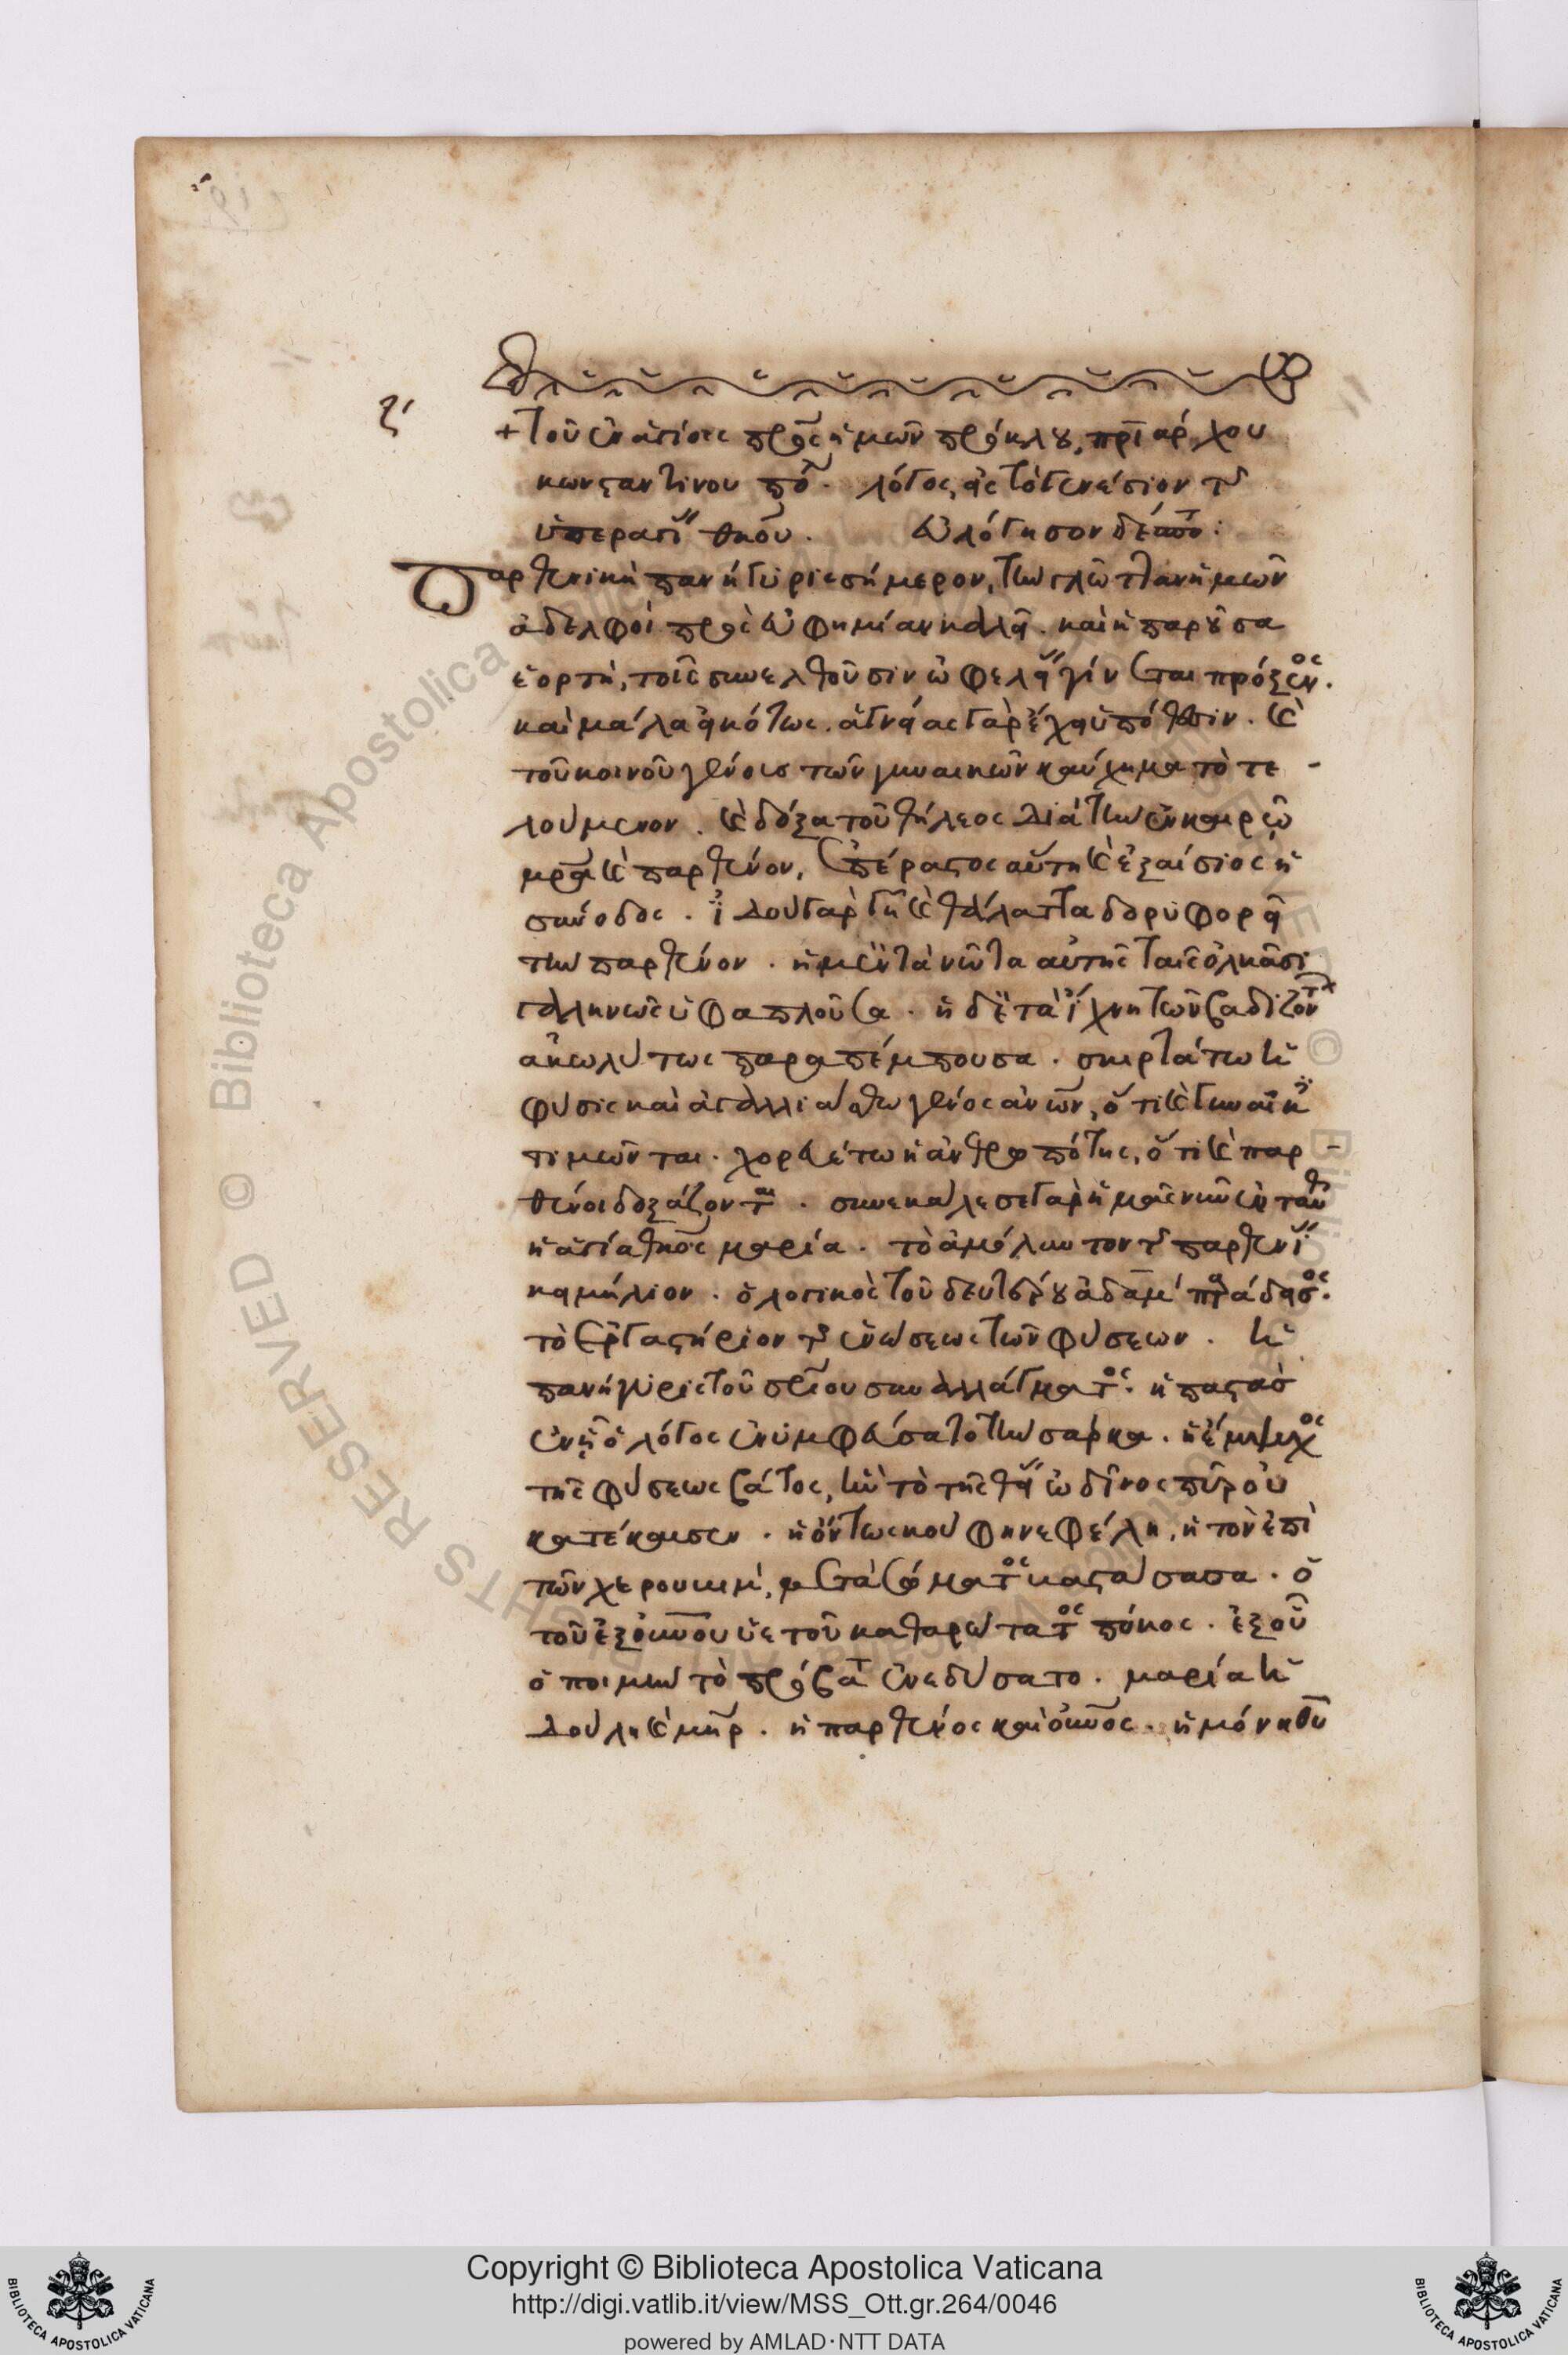 ζ´
+ Τοῦ ἐν ἁγίοις πρ̅ς ἡμῶν πρόκλου, πρϊάρχου
κωνσταντίνου πό̅. λόγος, εἰς τὸ γενέσιον τῆς
ὑπεραγί θκ̅ου. εὐλόγησον δέσπο̅:
Παρθενικὴ πανήγυρις σήμερον, τὴν γλῶτταν ἡμῶν
ἀδελφοὶ πρὸς εὐφημίαν καλεῖ. καὶ ἡ παροῦσα
ἑορτὴ, τοῖς συνελθοῦσιν ὠφελεί γίνεται πρόξεν.
καὶ μάλα εἰκότως. ἁγνείας γὰρ ἔχει ὑπόθεσιν. καὶ
τοῦ κοινοῦ γένους τῶν γυναικῶν καύχημα τὸ τε-
λούμενον. καὶ δόξα τοῦ θήλεος διὰ τὴν ἐν καιρῶ
μρ̅α καὶ παρθένον, ἐπέραστος αὕτη καὶ ἐξαίσιος ἡ
σύνοδος. ἰδοὺ γὰρ γῆ καὶ θάλαττα δορυφορεῖ
τὴν παρθένον. ἡ μὲν τὰ νῶτα αὐτῆς ταῖς ὁλκάσι
γαληνῶς ὑφαπλοῦσα. ἡ δὲ τὰ ἴχνη τῶν βαδιζόντ
ἀκωλύτως παραπέμπουσα. σκιρτάτω ἡ
φύσις καὶ ἀγαλλιάσθω γένος ἀν̅ων, ὅτι καὶ γυναῖκ
τιμῶνται. χορευέτω ἡ ἀνθρωπότης, ὅτι καὶ παρ-
θένοι δοξάζονται. συνεκάλεσε γὰρ ἡμᾶς νῦν ἐνταῦθ
ἡ ἁγία θκ̅ος μαρία. τὸ ἀμόλυντον τῆς παρθενί
κειμήλιον. ὁ λογικὸς τοῦ δευτέρου ἀδὰμ πράδεισος.
τὸ ἐργαστήριον τῆς ἑνώσεως τῶν φύσεων. ἡ
πανήγυρις τοῦ σρ̅ίου συναλλάγματος. ἡ παστὰς
ἐν ἧ ὁ λόγος ἐνυμφεύσατο τὴν σάρκα. ἡ ἔμψυχος
τῆς φύσεως βάτος, ἣν τὸ τῆς θεί ὠδῖνος πῦρ οὐ
κατέκαυσεν. ἡ ὄντως κούφη νεφέλη, ἡ τὸν ἐπὶ
τῶν χερουβιμ, μετὰ σώματος βαστάσασα. ὁ
τοῦ ἐξ οὐν̅ου ὑετοῦ καθαρώτατος πόκος. ἐξ οὗ
ὁ ποιμὴν τὸ πρόβατ ἐνεδύσατο. μαρία ἡ
δούλη καὶ μη̅ρ. ἡ παρθένος καὶ οὐν̅ος. ἡ μόνη θυ̅
Copyright © Biblioteca Apostolica Vaticana
http://digi.vatlib.it/view/MSS_Ott.gr.264/0046
powered by AMLAD·NTT DATA